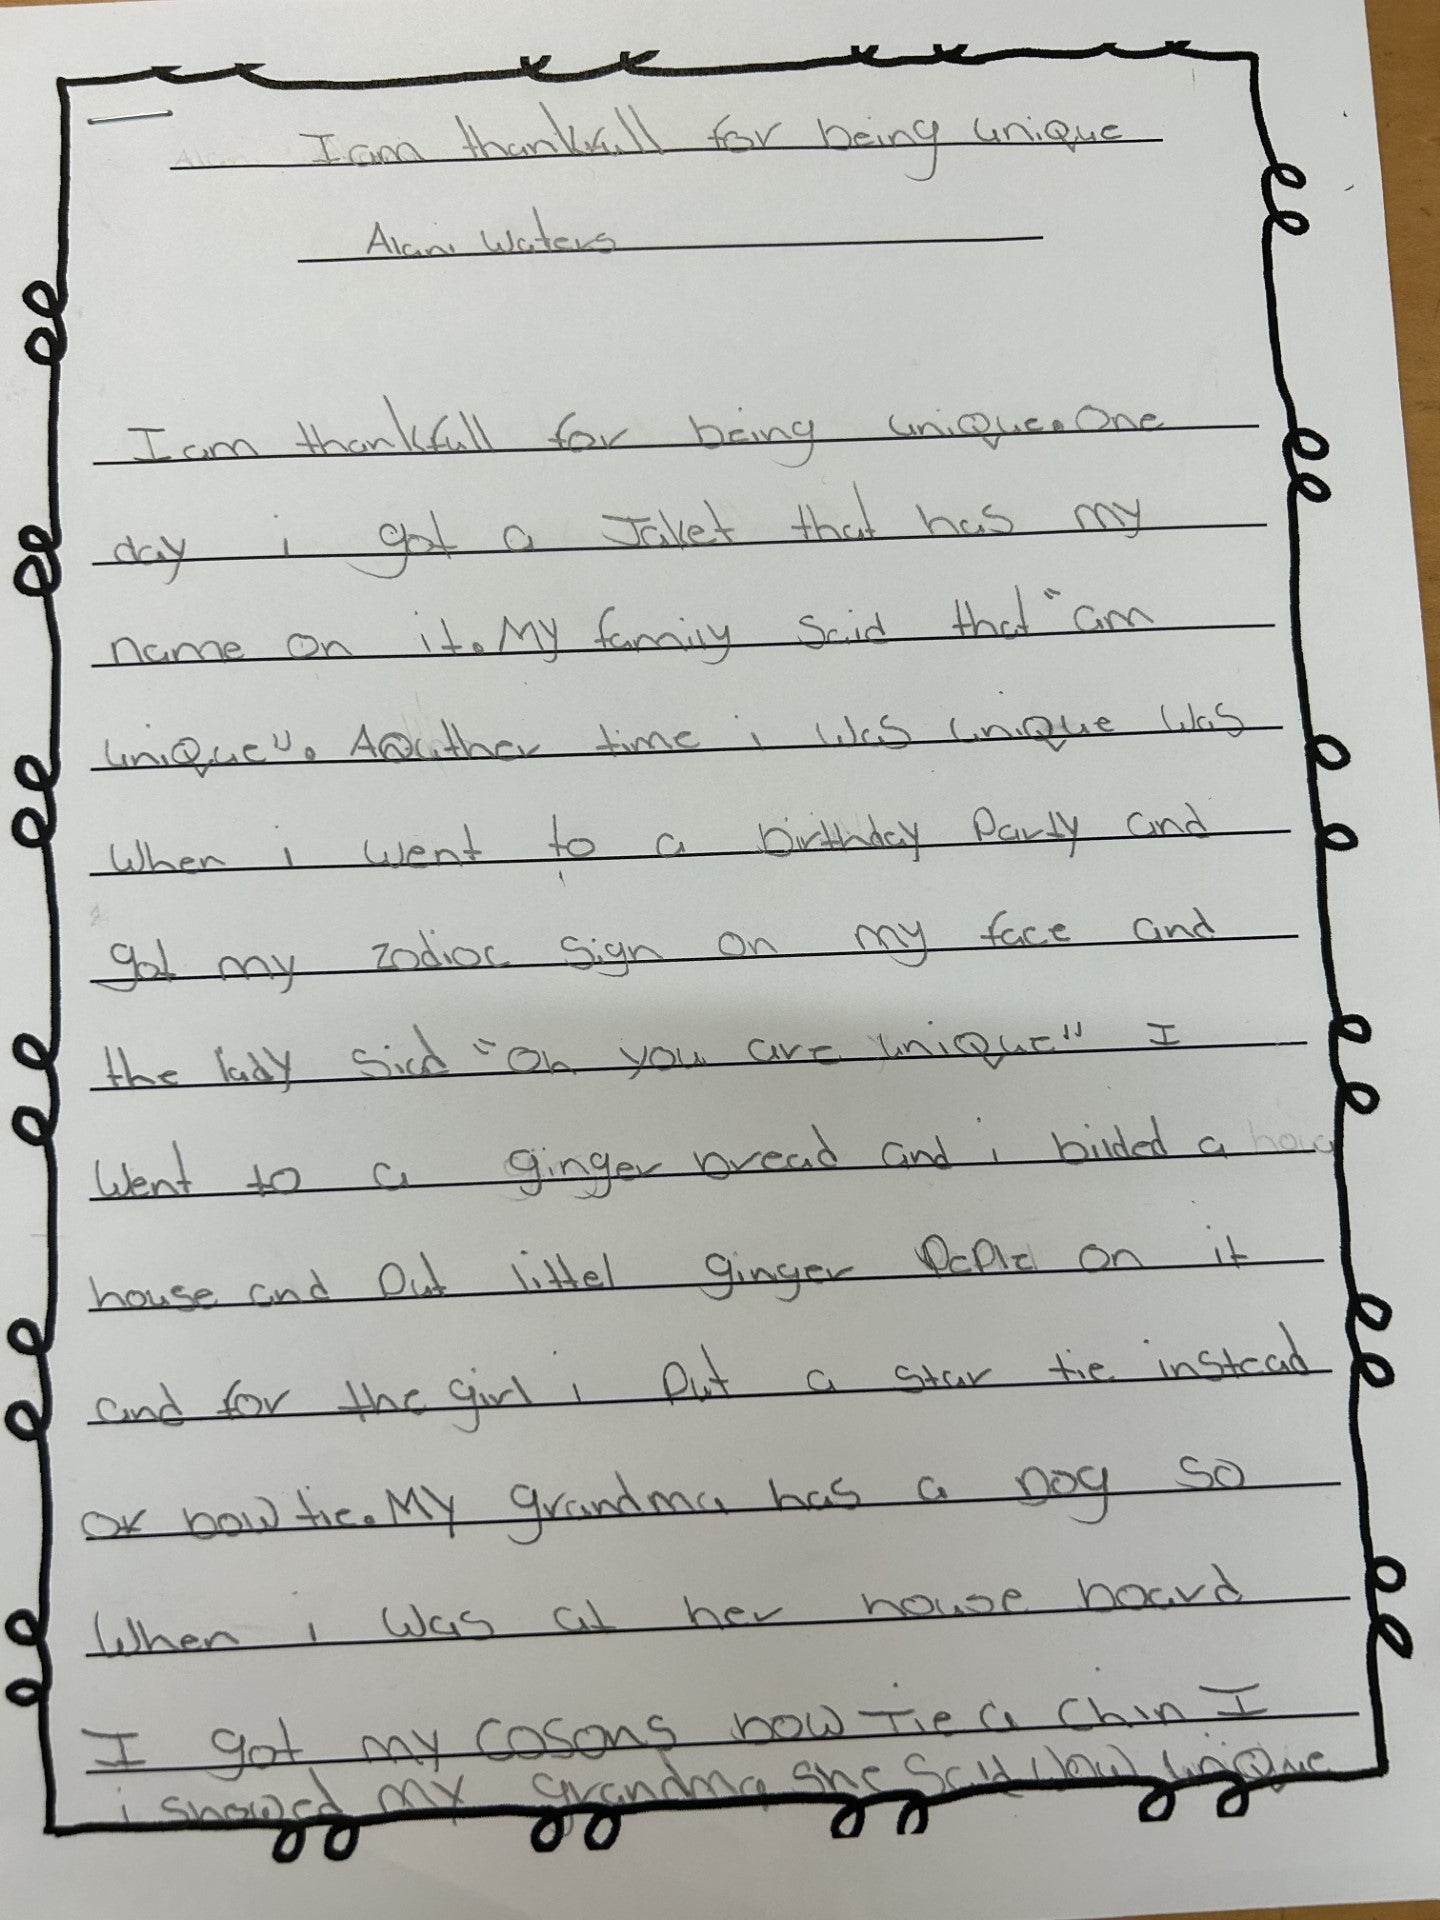 I am thankfull for being unique
Alani Waters
I am thankfull for being unique. One
day i got a Jaket that has my
name on it. My family said that "am
unique". Aouther time i was unique was
When i went to a birthday Party and
got my zodiac sign on my face and
the lady sicd "oh you are unique" I
Went to a ginger bread and i bilded a
house and put littel ginger peple on it
and for the girl i put a star tie instead
or bow tie. My grandma has a Dog so
When i was at her house board
I got my cosons bow Tie a Chin I
i showed my grandma she said Wow unique